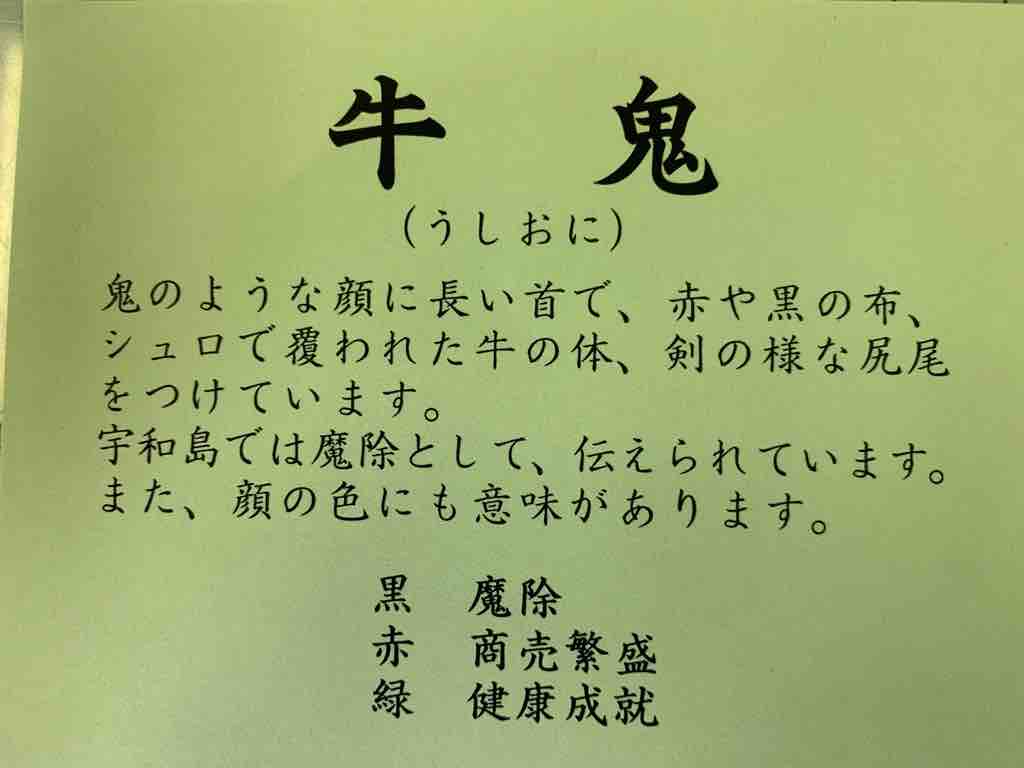 牛 鬼
（うしおに）
鬼のような顔に長い首で、赤や黒の布、
シュロで覆われた牛の体、剣の様な尻尾
をつけています。
宇和島では魔除として、伝えられています。
また、顔の色にも意味があります。
黒 魔除
赤 商売繁盛
緑 健康成就